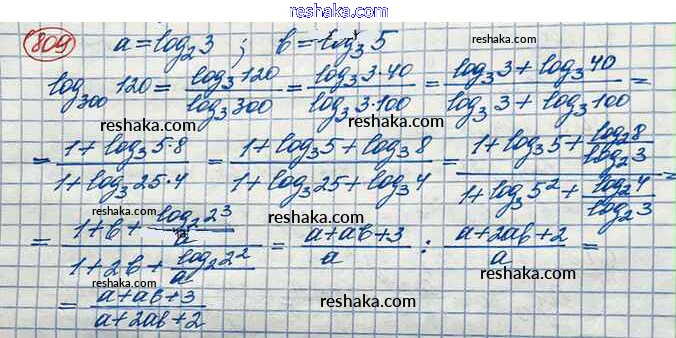 reshak.ru
809 a = log₂3 ; b = log₃5
reshaka.com
log₃₀₀120 = log₃120 / log₃300 = log₃3·40 / log₃3·100 = (log₃3 + log₃40) / (log₃3 + log₃100) =
reshaka.com reshaka.com
= (1 + log₃5·8) / (1 + log₃25·4) = (1 + log₃5 + log₃8) / (1 + log₃25 + log₃4) = (1 + log₃5 + log₂8 / log₂3) / (1 + log₃5² + log₂4 / log₂3) =
reshaka.com reshaka.com
= (1 + b + log₂2³ / a) / (1 + 2b + log₂2² / a) = (a + ab + 3) / a : (a + 2ab + 2) / a =
reshaka.com reshaka.com
= (a + ab + 3) / (a + 2ab + 2)
reshaka.com
reshaka.com
reshak.ru